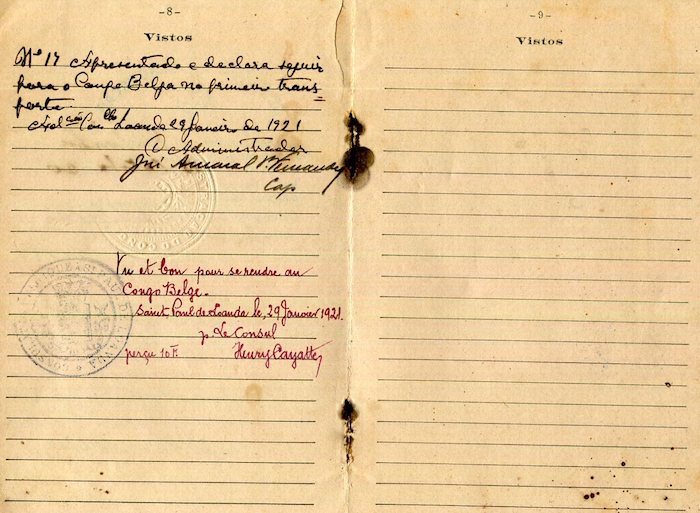 -8-
Vistos
Nº 17 Apresentado e declara seguir
para o Congo Belga no primeiro trans=
porte.
Loanda 29 Janeiro de 1921
O Administrador
José Amaral
Cap
Vu et bon pour se rendre au
Congo Belge.
Saint Paul de Loanda le, 29 Janvier 1921.
p. Le Consul
perçu 10 F. Henry Cayatte
-9-
Vistos